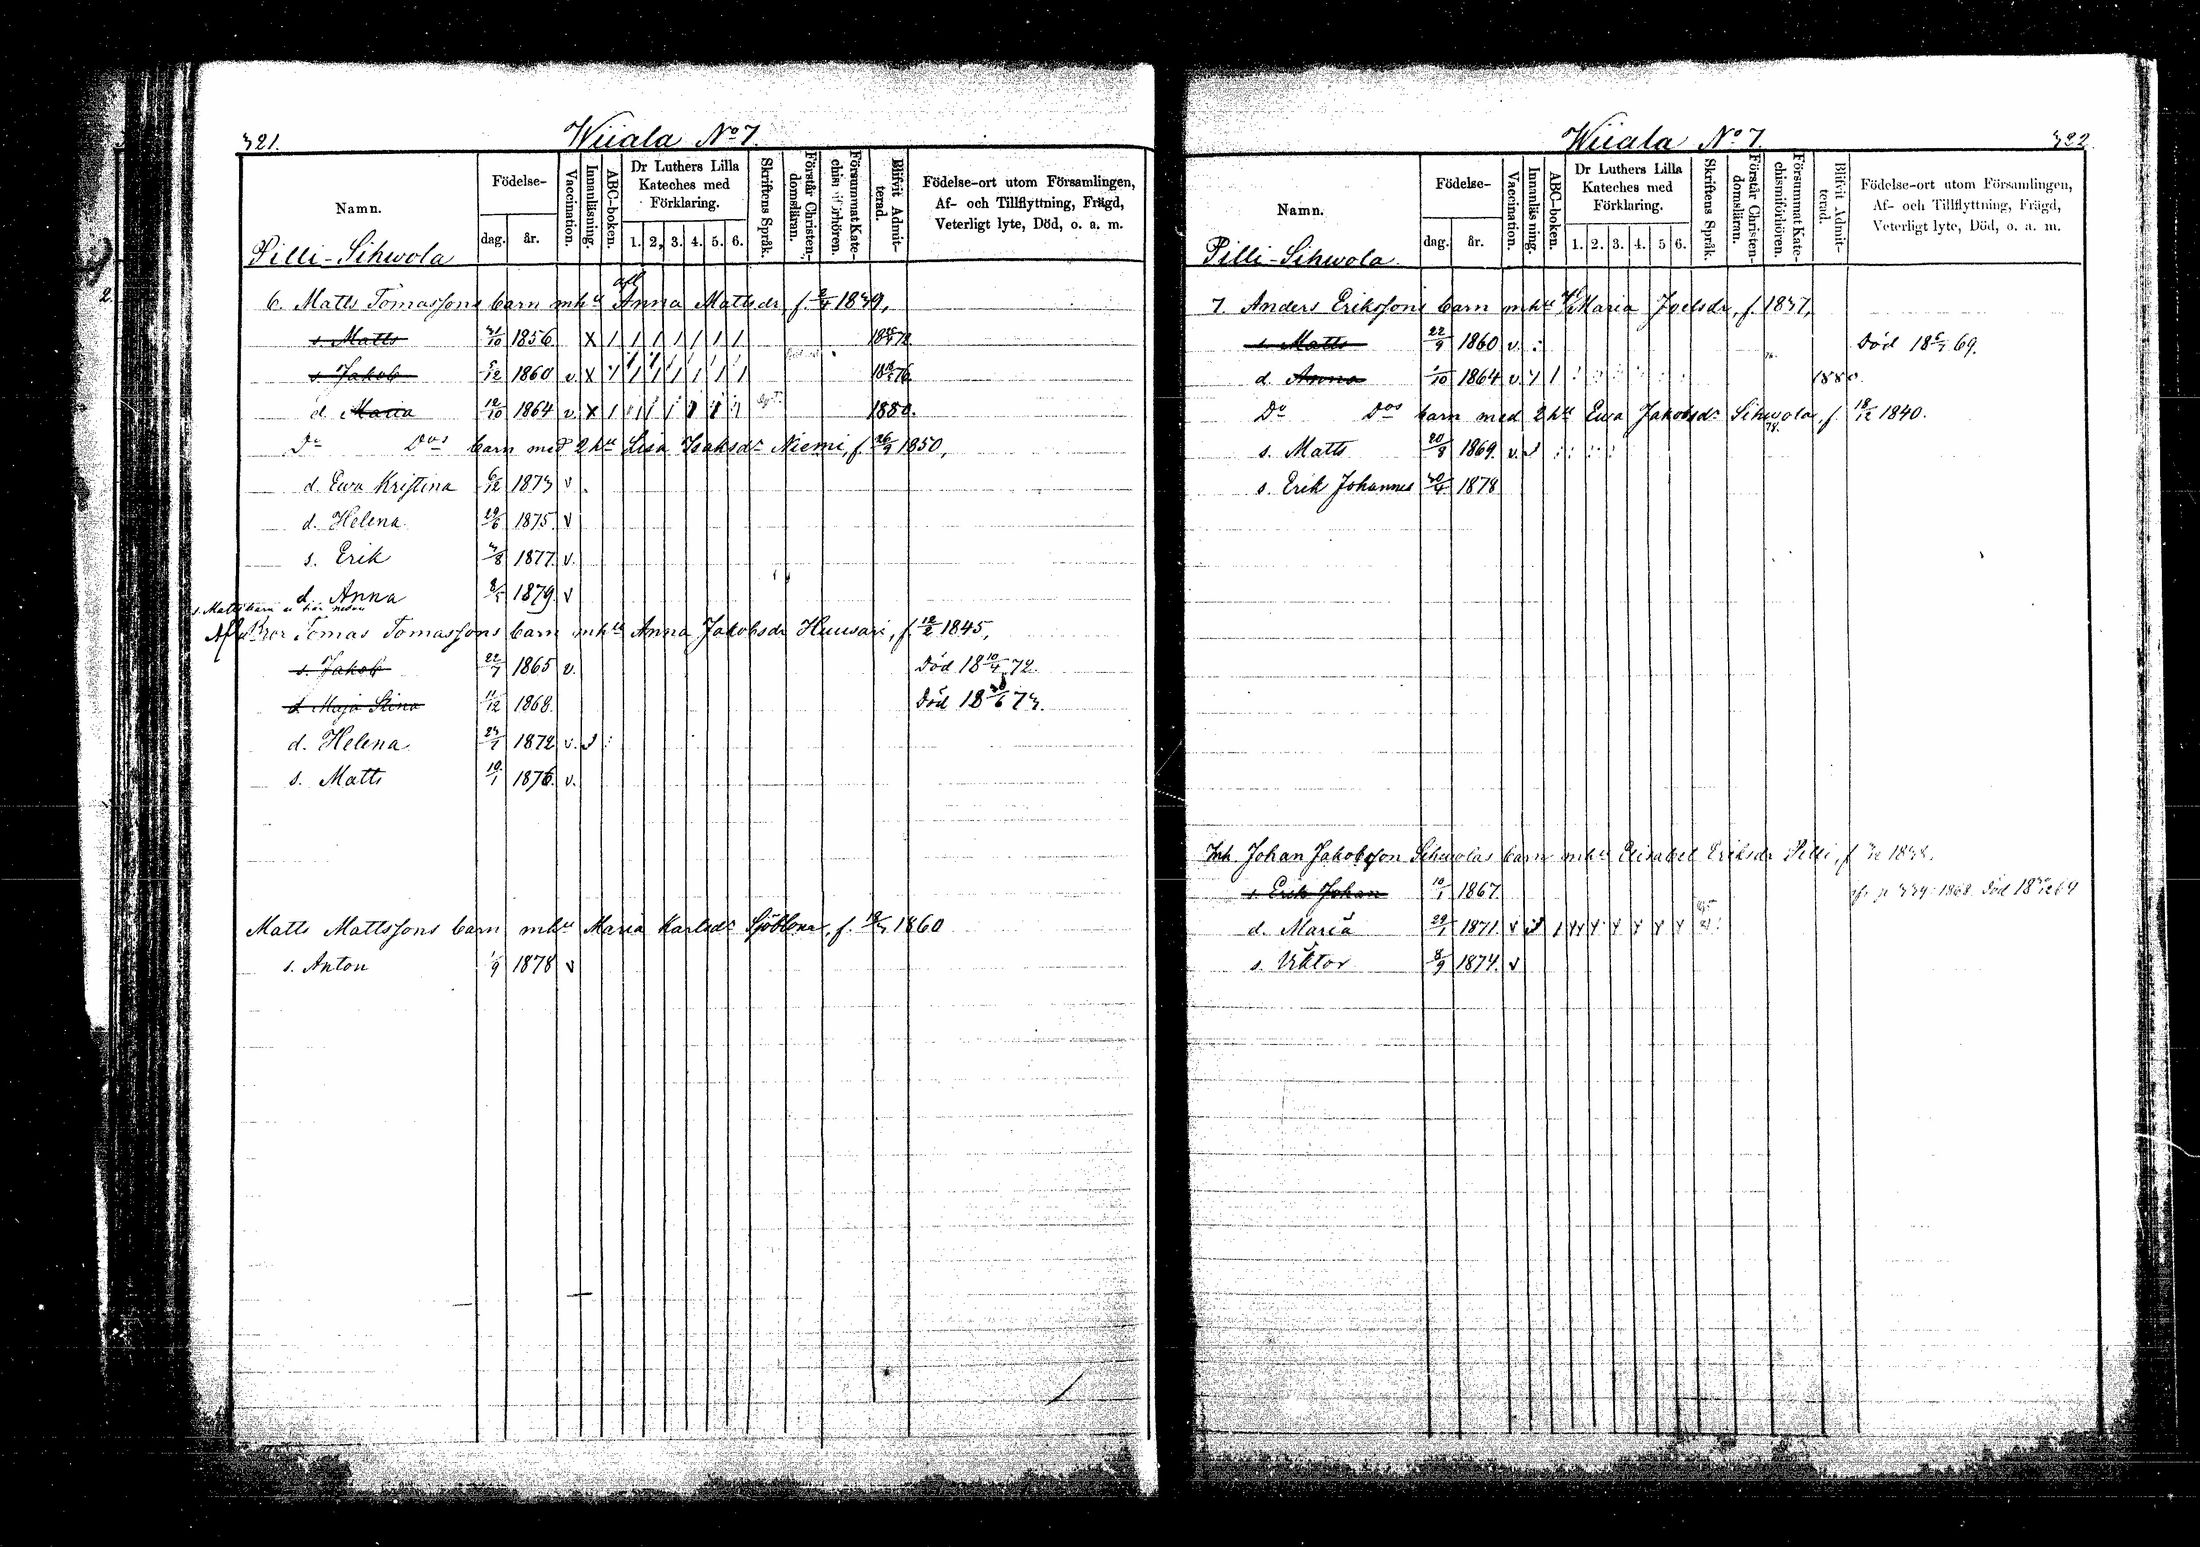 321.
Wiiala No 7.
Namn.
Födelse-
dag.
år.
Vaccination.
Innanläsning.
ABC-boken.
Dr Luthers Lilla
Kateches med
Förklaring.
1. 2, 3. 4. 5. 6.
Skriftens Språk.
Förstår Christen-
domsläran.
Försummat Kate-
chismiförhören.
Blifvit Admit-
terad.
Födelse-ort utom Församlingen,
Af- och Tillflyttning, Frägd,
Veterligt lyte, Död, o. a. m.
Pilli-Sihwola
6. Matts Tomassons barn mhu afl Anna Mattsdr, f. 1839,
s. Matts 31/10 1856 X / / / / / / / 78
s. Jakob 5/12 1860 v. X / / / / / / / 76
d. Maria 12/10 1864 v X / / / / / / / 1880.
Do Dos barn med 2 hu Lisa Isaksdr Niemi, f. 26/9 1850,
d. Ewa Kristina 6/12 1873 v
d. Helena 29/6 1875 v
s. Erik 3/8 1877. v.
d. Anna 1879. v
s. Matts barn se här nedan
Afl. Bror Tomas Tomassons barn mhu Anna Jakobsdr Huusari, f. 12/2 1845,
s. Jakob 22/7 1865 v. Död 18 10/4 72.
d. Maja Stina 11/12 1868. Död 18 30/6 73.
d. Helena 23/1 1872 v.
s. Matts 19/1 1876. v.
Matts Mattssons barn mhu Maria Karlsdr Sjöblom, f. 1860
s. Anton 1/9 1878 v
Wiiala No 7.
322
Namn.
Födelse-
dag.
år.
Vaccination.
Innanläsning.
ABC-boken.
Dr Luthers Lilla
Kateches med
Förklaring.
1. 2. 3. 4. 5 6.
Skriftens Språk.
Förstår Christen-
domsläran.
Försummat Kate-
chismiförhören.
Blifvit Admit-
terad.
Födelse-ort utom Församlingen,
Af- och Tillflyttning, Frägd,
Veterligt lyte, Död, o. a. m.
Pilli-Sihwola
7. Anders Erikssons barn mhu Maria Joelsdr, f. 1837,
s. Matts 22/9 1860 v. Död 18 69.
d. Anna 1/10 1864 v. 1880.
Do Dos barn med 2 hu Ewa Jakobsdr Sihwola, f. 18/12 1840.
s. Matts 20/8 1869. v.
s. Erik Johannes 30/4 1878
Inh. Johan Jakobsson Sihwolas barn mhu Elisabet Eriksdr Pilli, f. 1838.
s. Erik Johan 10/1 1867. 1868 Död 18 69
d. Maria 29/1 1871. v
s. Viktor 8/9 1874. v